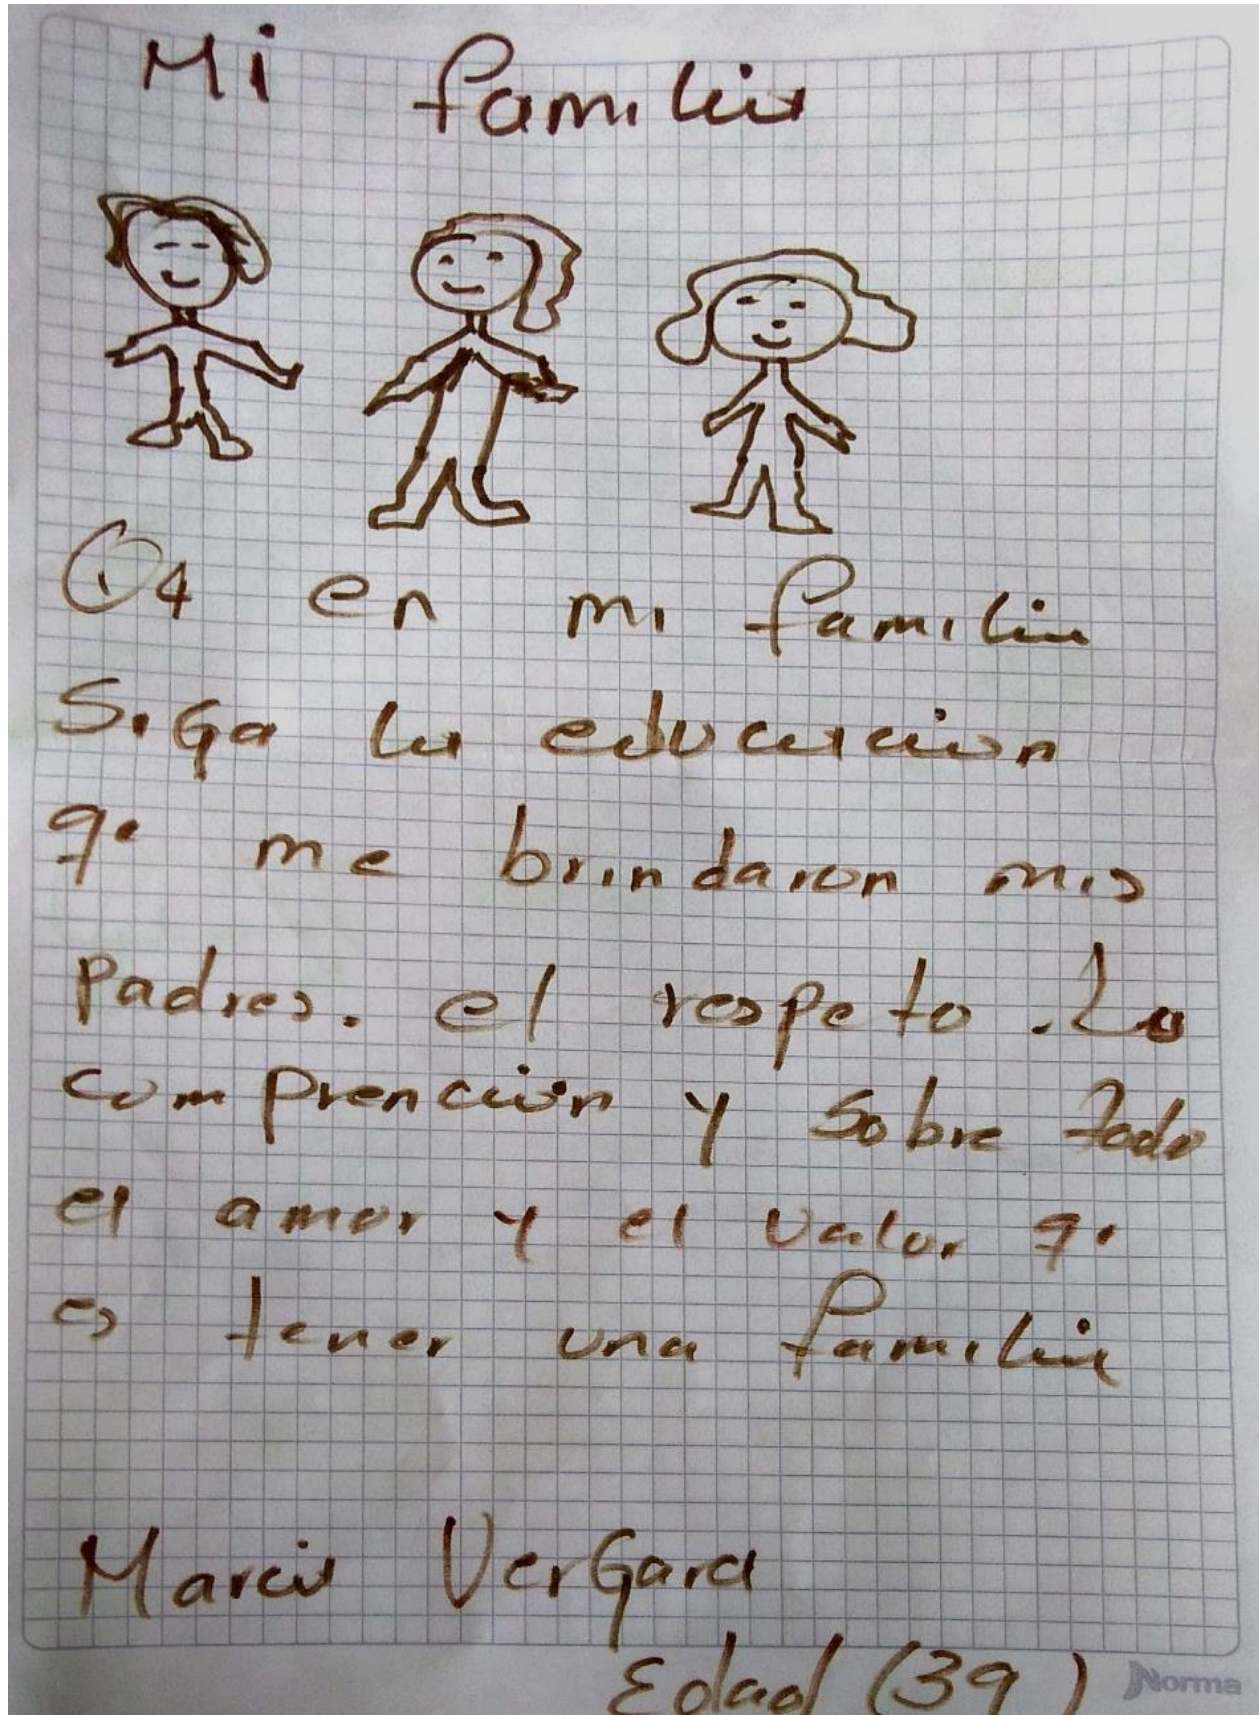 Mi familia
en mi familia
Siga la educacion
q. me brindaron mis
Padres. el respeto. La
comprención y sobre todo
el amor y el valor q.
es tener una familia
Marcia VerGara
Edad (39)
Norma